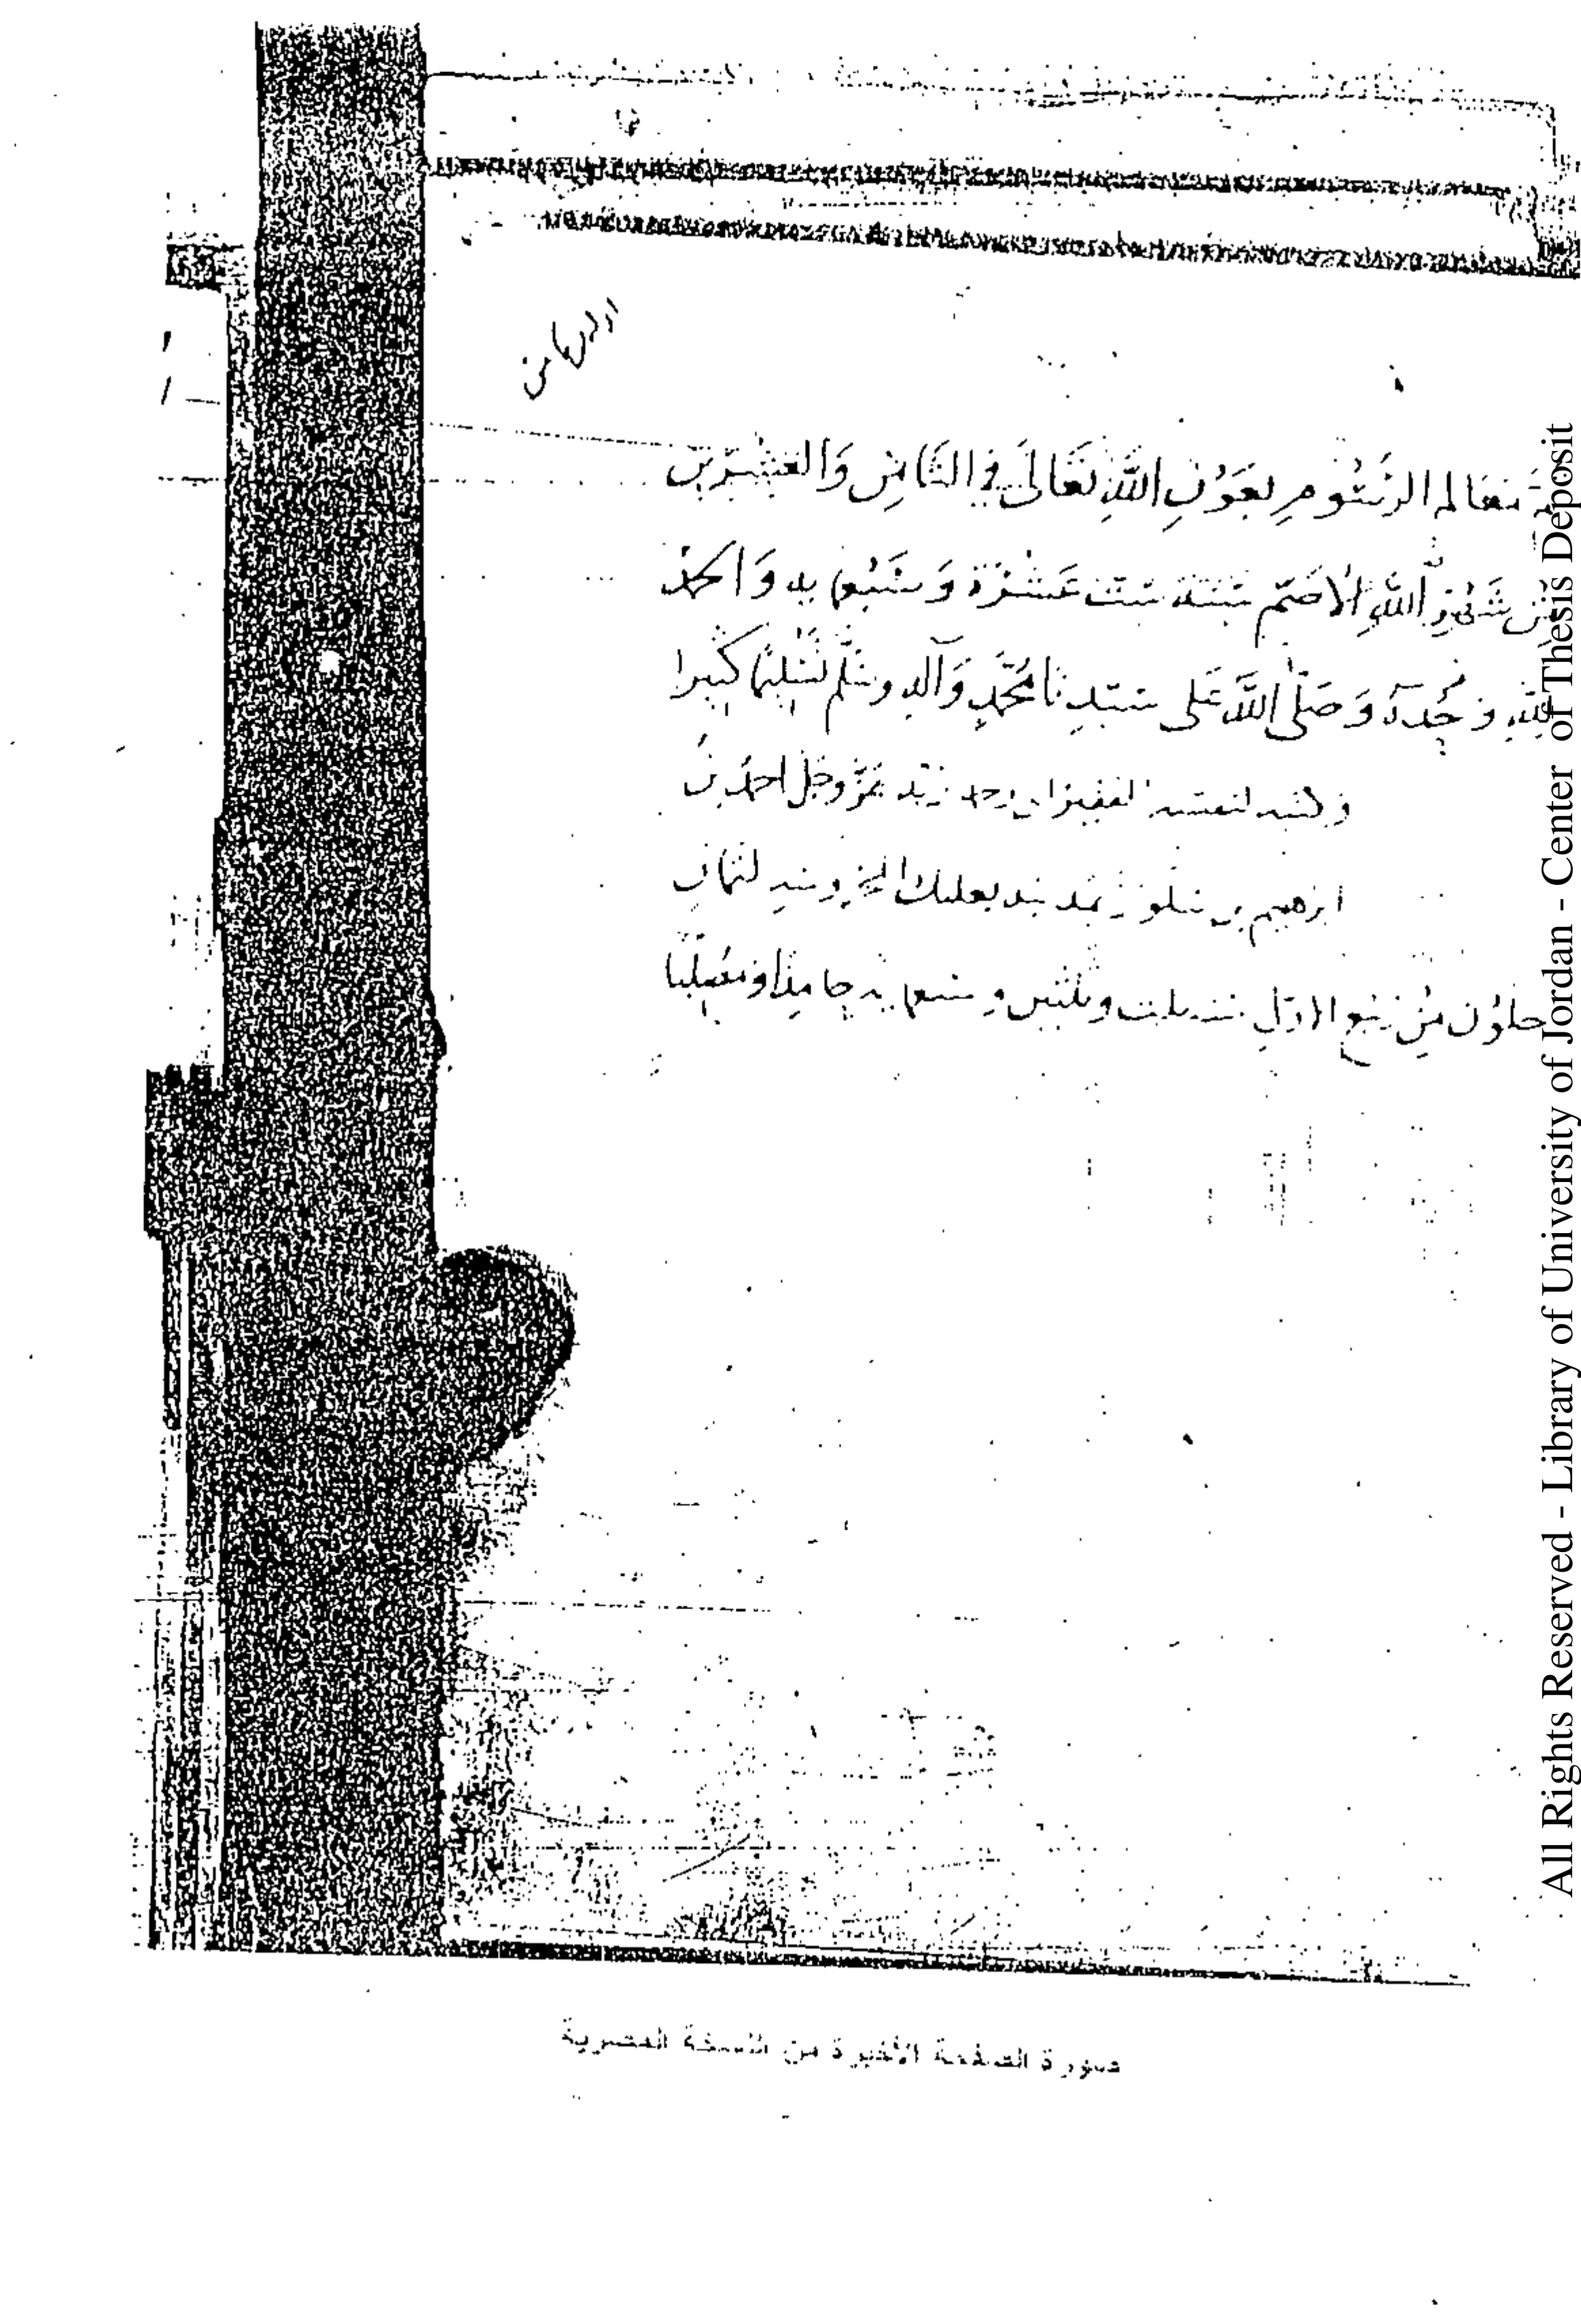 معالم الرسوم بعون الله تعالى في الثامن والعشرين
من شهر الله الأصم سنة ست عشرة وسبعمايه والحمد
لله وحده وصلى الله على سيدنا محمد وآله وسلم تسليما كثيرا
وكتبه لنفسه الفقير الى رحمة ربه عز وجل احمد بن
ابرهيم بن بمدينه بعلبك المحروسه لثمان
خلون من ربيع الاول سنه ثلث وثلثين وسبعمايه حامدا ومصليا
صورة الصفحة الأخيرة من النسخة المصرية
All Rights Reserved - Library of University of Jordan - Center of Thesis Deposit